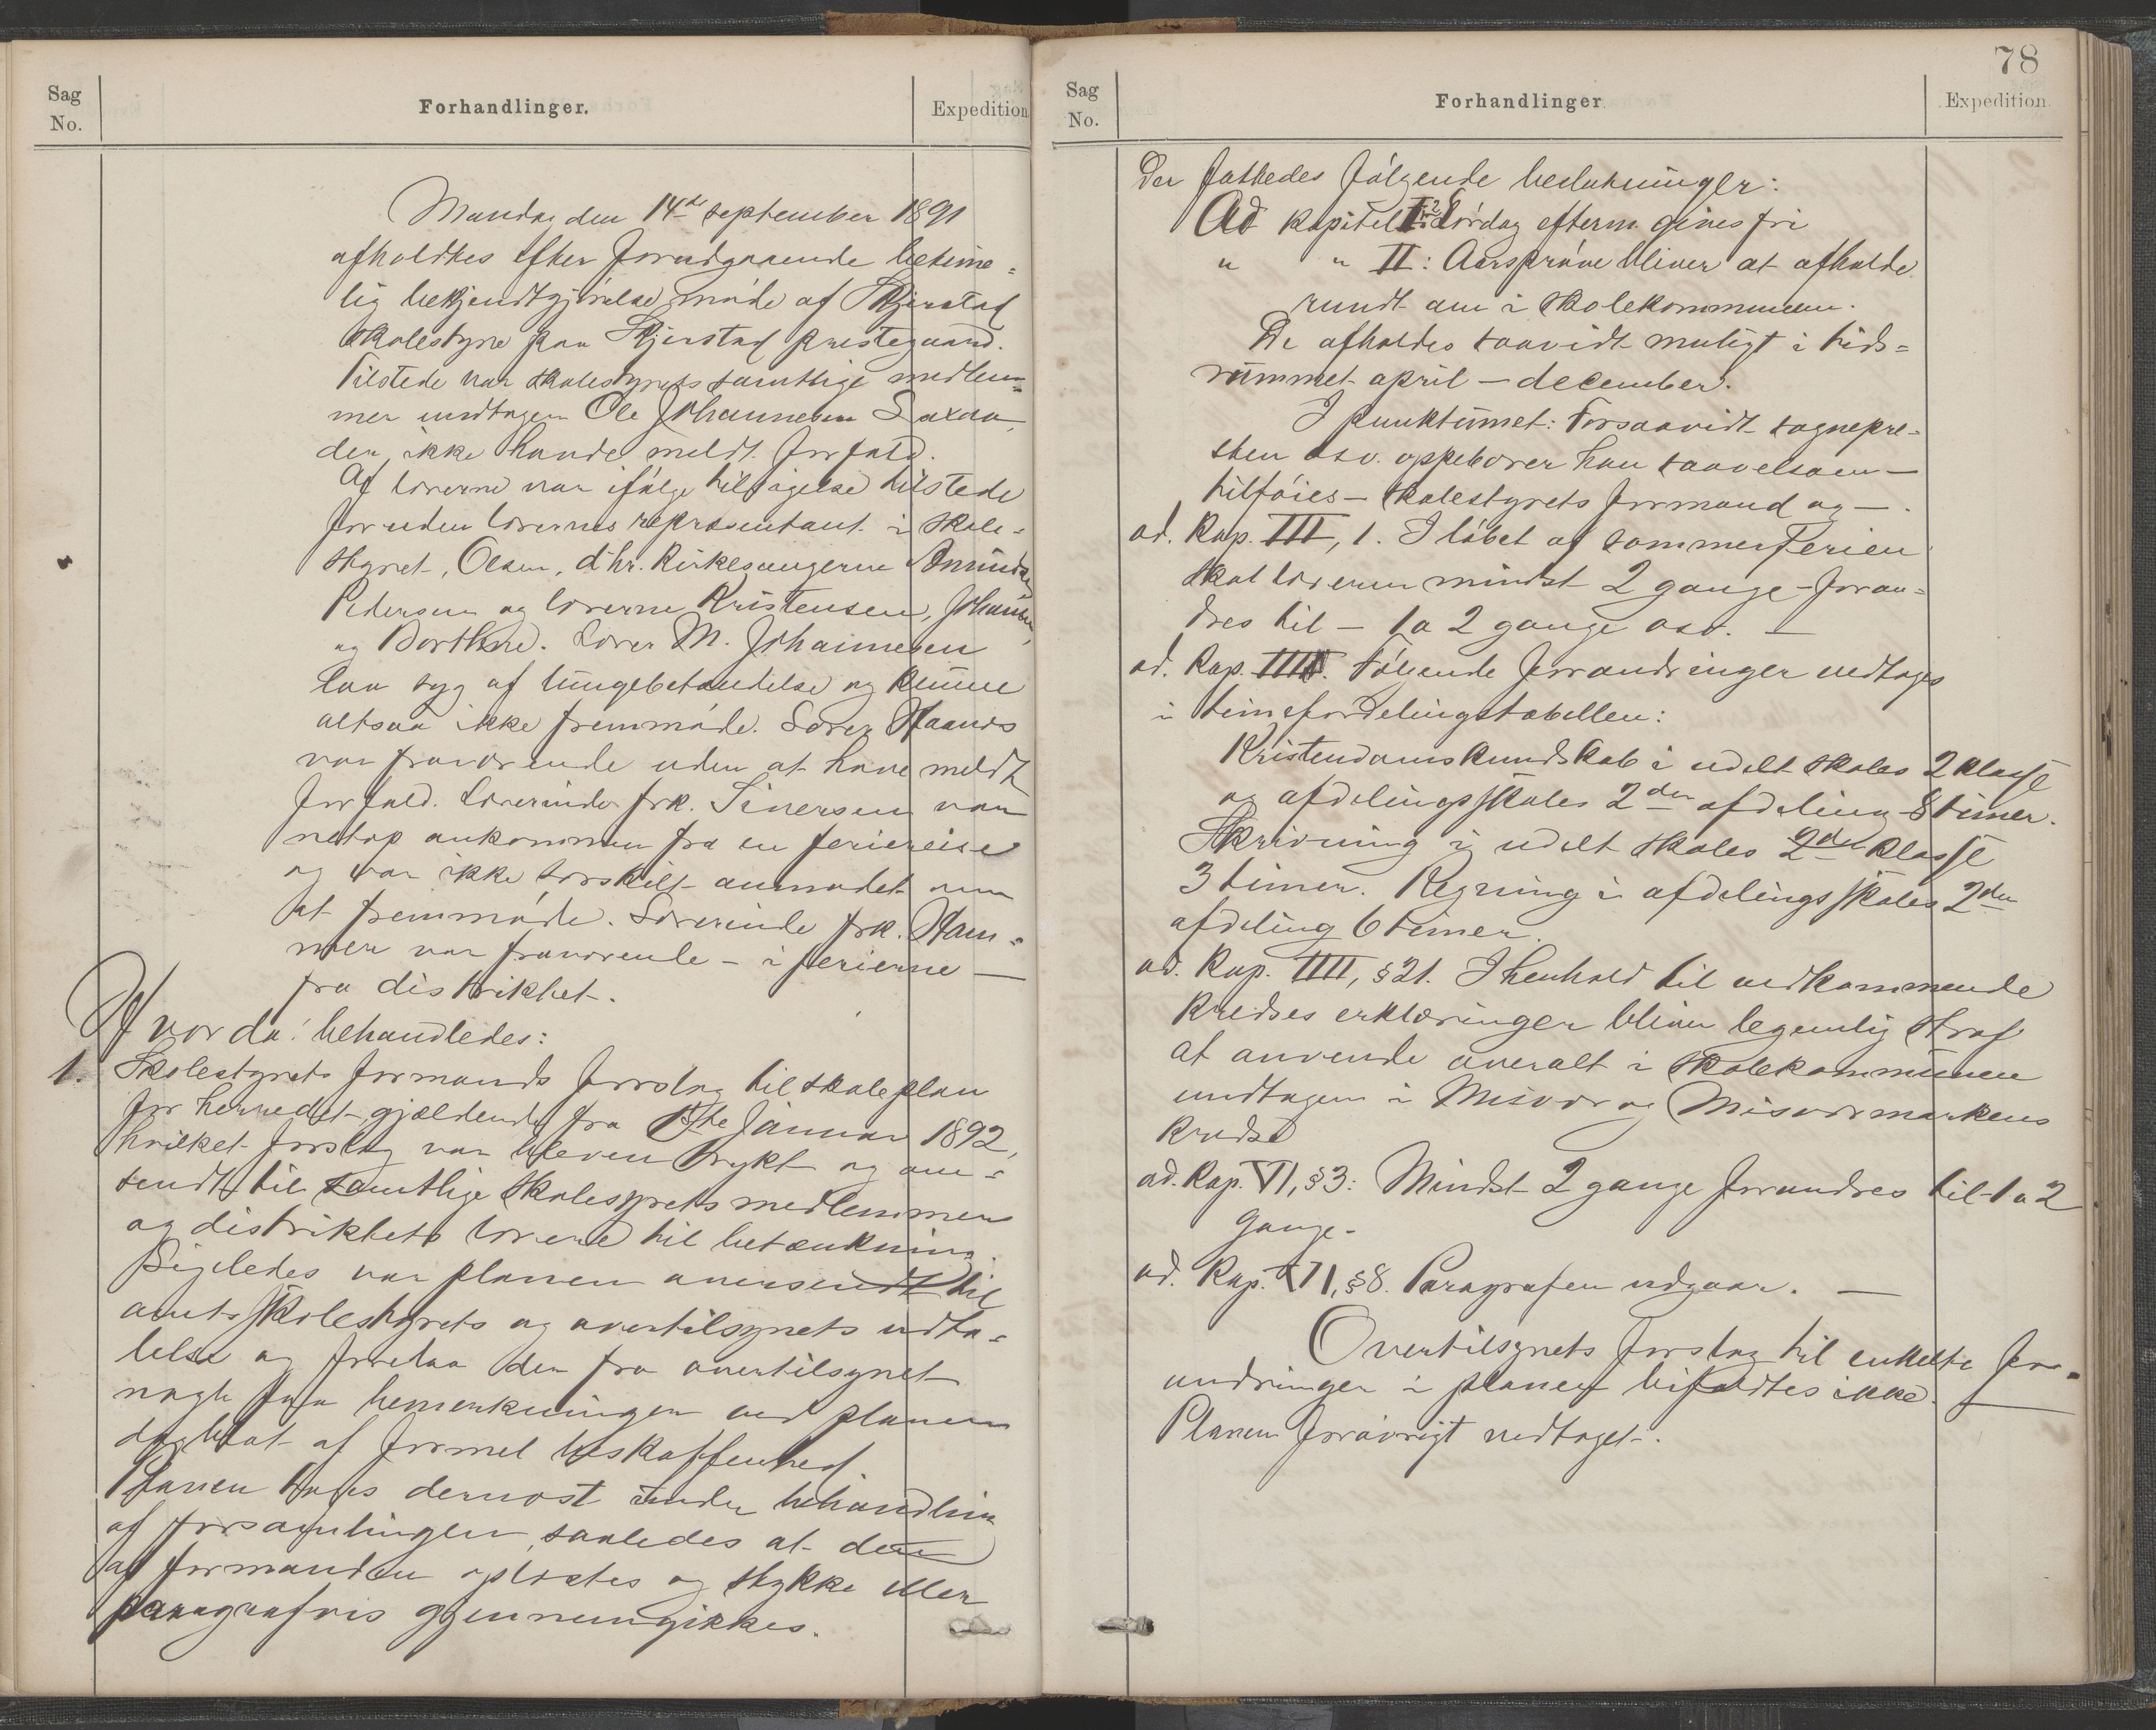 Sag
No.
Forhandlinger.
Expedition
Mandag den 14de september 1891
afholdtes efter forudgaaende betime=
lig bekjendtgjørelse møde af Skjerstad
skolestyre paa Skjerstad prestegaard.
Tilstede var skolestyrets samtlige medlem=
mer undtagen Ole Johannesen Saxaa,
der ikke havde meldt forfald.
Af lærerne var ifølge tilsigelse tilstede
foruden lærernes repræsentant i skole=
styret, Olsen, d'hr. Kirkesangerne Amundsen
Pedersen og lærerne Kristensen, Johansen,
og Dorthne. Lærer M. Johannesen
laa syg af lungebetændelse og kunne
altsaa ikke fremmøde. Lærer Haanes
var fraværende uden at have meldt
forfald. Lærerinde frk. Siversen var
netop ankommen fra en feriereise
og var ikke særskilt anmodet om
at fremmøde. Lærerinde frk. Ham=
mer var fraværende – i ferierne –
fra distriktet.
Hvor da behandledes:
1. Skolestyrets formands forslag til skoleplan
for herredet, gjældende fra 1ste Januar 1892,
hvilket forslag var bleven trykt og om=
sendt til samtlige skolestyrets medlemmer
og distriktets lærere til betænkning.
Ligeledes var planen oversendt til
amtsskolestyrets og overtilsynets udta=
lelse og forelaa der fra overtilsynet
nogle faa bemerkninger ved planen
dog blot af formel beskaffenhed.
Planen toges dernæst under behandling
af forsamlingen, saaledes at den
af formanden oplæstes og stykke eller
paragrafvis gjennemgikkes.
78
Sag
No.
Forhandlinger
Expedition.
Der fattedes følgende beslutninger:
Ad kapitel I § 2 Lørdag efterm. gives fri
" " II: Aarsprøve bliver at afholde
rundt om i skolekommunen.
De afholdes saavidt muligt i tids=
rummet april – december.
I punktumet: Forsaavidt sognepre=
sten osv. oppebærer han saavelsom –
tilføies – skolestyrets formand og –.
ad. Kap. III, 1. I løbet af sommerferien
skal læreren mindst 2 gange – foran=
dres til – 1 a 2 gange osv. –
ad. Kap. IIII. Følgende forandringer vedtages
i timefordelingstabellen:
Kristendomskundskab i udelt skoles 2 klasse
og afdelingsskoles 2den afdeling 8 timer.
Skrivning i udelt skoles 2den klasse
3 timer. Regning i afdelingsskoles 2den
afdeling 6 timer.
ad. Kap. IIII, §21. I henhold til vedkommende
kredses erklæringer bliver legemlig straf
at anvende overalt i skolekommunen
undtagen i Misvær og Misværmarkens
kreds
ad. Kap. VI, §3: Mindst 2 gange forandres til 1 a 2
gange.
ad. Kap. VI, §8. Paragrafen udgaar. –
Overtilsynets forslag til enkelte for=
andringer i planen bifaldtes ikke.
Planen forøvrigt vedtaget.